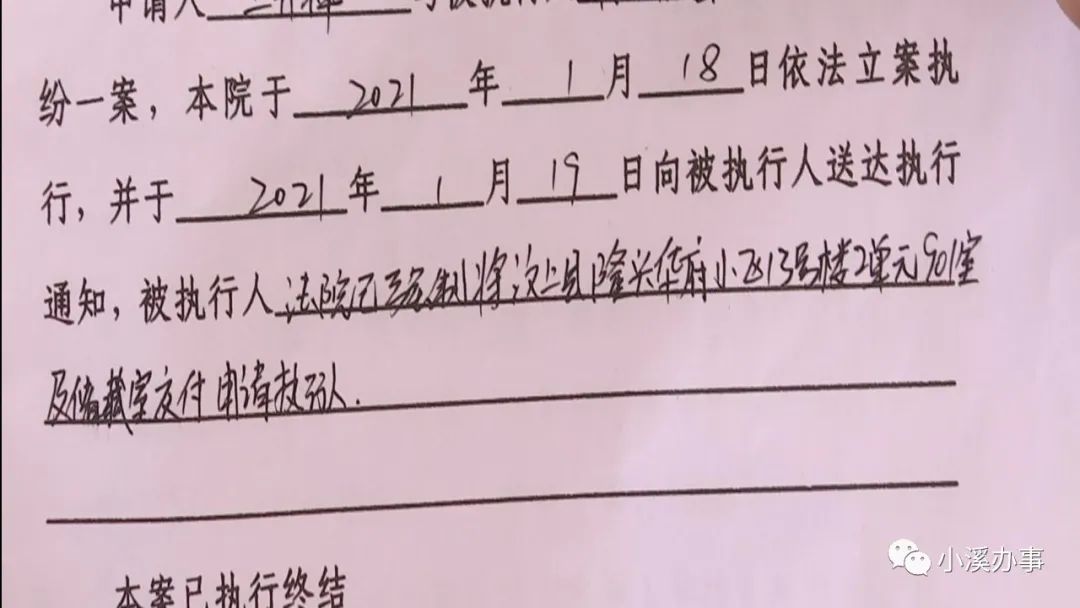 申请人
纷一案，本院于 2021 年 1 月 18 日依法立案执
行，并于 2021 年 1 月 19 日向被执行人送达执行
通知，被执行人 法院已强制将汶上县隆兴华府小区13号楼2单元901室
及储藏室交付申请执行人.
本案已执行终结
小溪办事